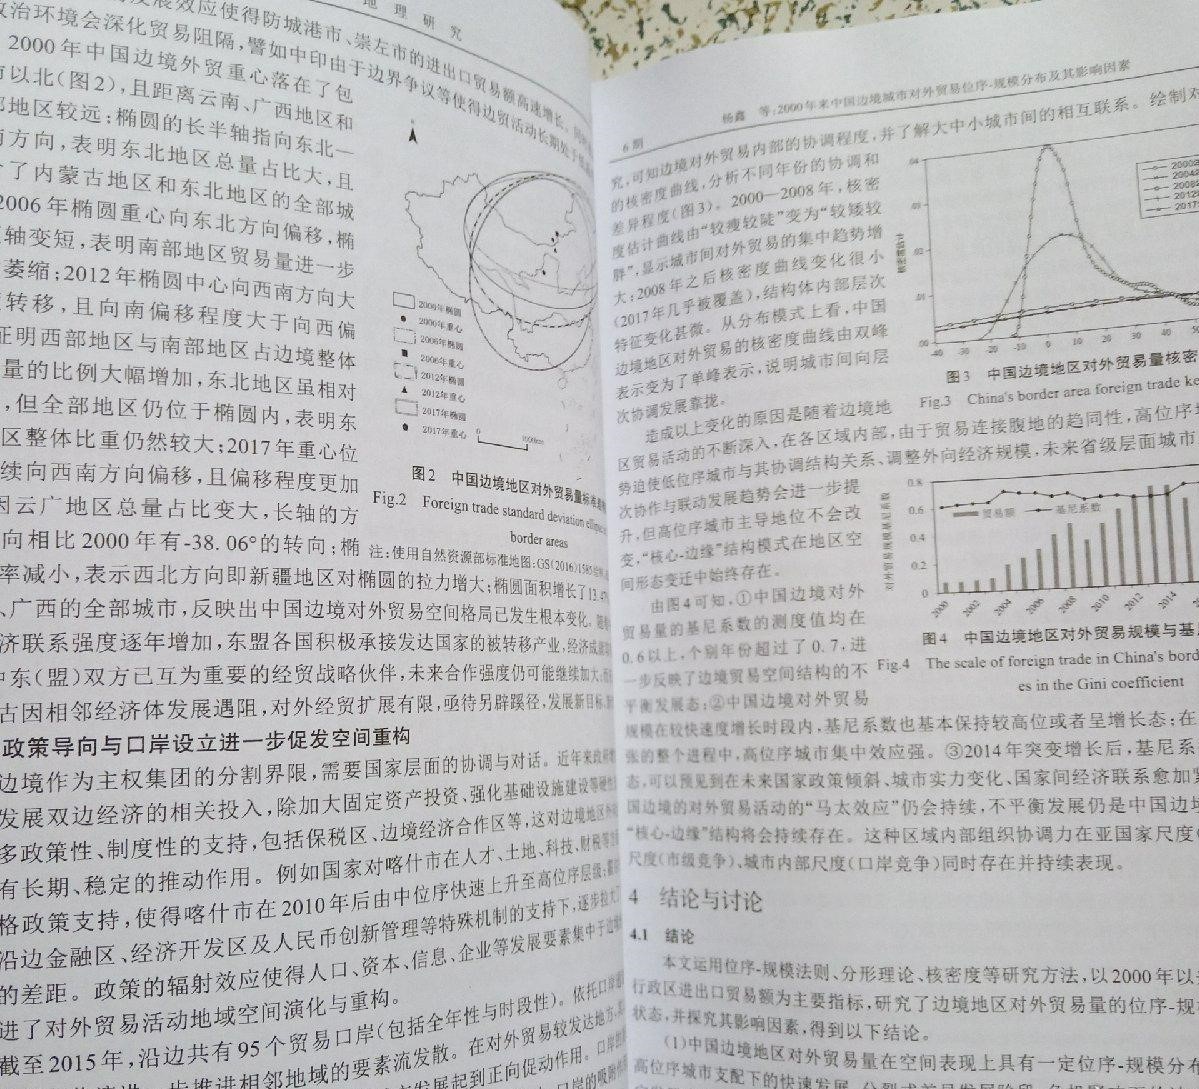 地 理 研 究
发展效应使得防城港市、崇左市的进出口贸易额高速增长。
政治环境会深化贸易阻隔,譬如中印由于边界争议等使得边贸活动长期处于
2000年中国边境外贸重心落在了包
以北(图2),且距离云南、广西地区和
部地区较远;椭圆的长半轴指向东北—
方向,表明东北地区总量占比大,且
了内蒙古地区和东北地区的全部城
2006年椭圆重心向东北方向偏移,椭
轴变短,表明南部地区贸易量进一步
萎缩;2012年椭圆中心向西南方向大
转移,且向南偏移程度大于向西偏
证明西部地区与南部地区占边境整体
量的比例大幅增加,东北地区虽相对
,但全部地区仍位于椭圆内,表明东
区整体比重仍然较大;2017年重心位
续向西南方向偏移,且偏移程度更加
因云广地区总量占比变大,长轴的方
向相比2000年有-38.06°的转向;椭
率减小,表示西北方向即新疆地区对椭圆的拉力增大;椭圆面积增长了13.4
、广西的全部城市,反映出中国边境对外贸易空间格局已发生根本变化。
济联系强度逐年增加,东盟各国积极承接发达国家的被转移产业,经济成
中东(盟)双方已互为重要的经贸战略伙伴,未来合作强度仍可能继续加大;
古因相邻经济体发展遇阻,对外经贸扩展有限,亟待另辟蹊径,发展新目标
N
2000年椭圆
2000年重心
2006年椭圆
2006年重心
2012年椭圆
2012年重心
2017年椭圆
2017年重心
0 1000km
图2 中国边境地区对外贸易量标准差
Fig.2 Foreign trade standard deviation ellipse
border areas
注:使用自然资源部标准地图:GS(2016)1585
政策导向与口岸设立进一步促发空间重构
边境作为主权集团的分割界限,需要国家层面的协调与对话。近年来政府
发展双边经济的相关投入,除加大固定资产投资、强化基础设施建设等硬性
多政策性、制度性的支持,包括保税区、边境经济合作区等,这对边境地区
有长期、稳定的推动作用。例如国家对喀什市在人才、土地、科技、财税等方
格政策支持,使得喀什市在2010年后由中位序快速上升至高位序层级;
沿边金融区、经济开发区及人民币创新管理等特殊机制的支持下,逐步拉大
的差距。政策的辐射效应使得人口、资本、信息、企业等发展要素集中于边
进了对外贸易活动地域空间演化与重构。
截至2015年,沿边共有95个贸易口岸(包括全年性与时段性)。依托口岸
步推进相邻地域的要素流发散。在对外贸易较发达地方,
发展起到正向促动作用。口岸
口岸的吸附
6期
杨鑫 等:2000年来中国边境城市对外贸易位序-规模分布及其影响因素
究,可知边境对外贸易内部的协调程度,并了解大中小城市间的相互联系。绘制对
的核密度曲线,分析不同年份的协调和
差异程度(图3)。2000—2008年,核密
度估计曲线由“较瘦较陡”变为“较矮较
胖”,显示城市间对外贸易的集中趋势增
大;2008年之后核密度曲线变化很小
(2017年几乎被覆盖),结构体内部层次
特征变化甚微。从分布模式上看,中国
边境地区对外贸易的核密度曲线由双峰
表示变为了单峰表示,说明城市间向层
次协调发展靠拢。
2000
2004
2008
2012
2017
-40 -30 -20 -10 0 10 20 30 40 50
图3 中国边境地区对外贸易量核密
Fig.3 China's border area foreign trade ke
造成以上变化的原因是随着边境地
区贸易活动的不断深入,在各区域内部,由于贸易连接腹地的趋同性,高位序城
势迫使低位序城市与其协调结构关系、调整外向经济规模,未来省级层面城市
次协作与联动发展趋势会进一步提
升,但高位序城市主导地位不会改
变,“核心-边缘”结构模式在地区空
间形态变迁中始终存在。
由图4可知,①中国边境对外
贸易量的基尼系数的测度值均在
0.6以上,个别年份超过了0.7,进
一步反映了边境贸易空间结构的不
平衡发展态;②中国边境对外贸易
0.8
0.6
0.4
0.2
0
贸易额 基尼系数
2000 2002 2004 2006 2008 2010 2012 2014
图4 中国边境地区对外贸易规模与基
Fig.4 The scale of foreign trade in China's bord
es in the Gini coefficient
规模在较快速度增长时段内,基尼系数也基本保持较高位或者呈增长态;在
张的整个进程中,高位序城市集中效应强。③2014年突变增长后,基尼系
态,可以预见到在未来国家政策倾斜、城市实力变化、国家间经济联系愈加
国边境的对外贸易活动的“马太效应”仍会持续,不平衡发展仍是中国边境
“核心-边缘”结构将会持续存在。这种区域内部组织协调力在亚国家尺度(
尺度(市级竞争)、城市内部尺度(口岸竞争)同时存在并持续表现。
4 结论与讨论
4.1 结论
本文运用位序-规模法则、分形理论、核密度等研究方法,以2000年以
行政区进出口贸易额为主要指标,研究了边境地区对外贸易量的位序-规
状态,并探究其影响因素,得到以下结论。
(1)中国边境地区对外贸易量在空间表现上具有一定位序-规模分布
高位序城市支配下的快速发展